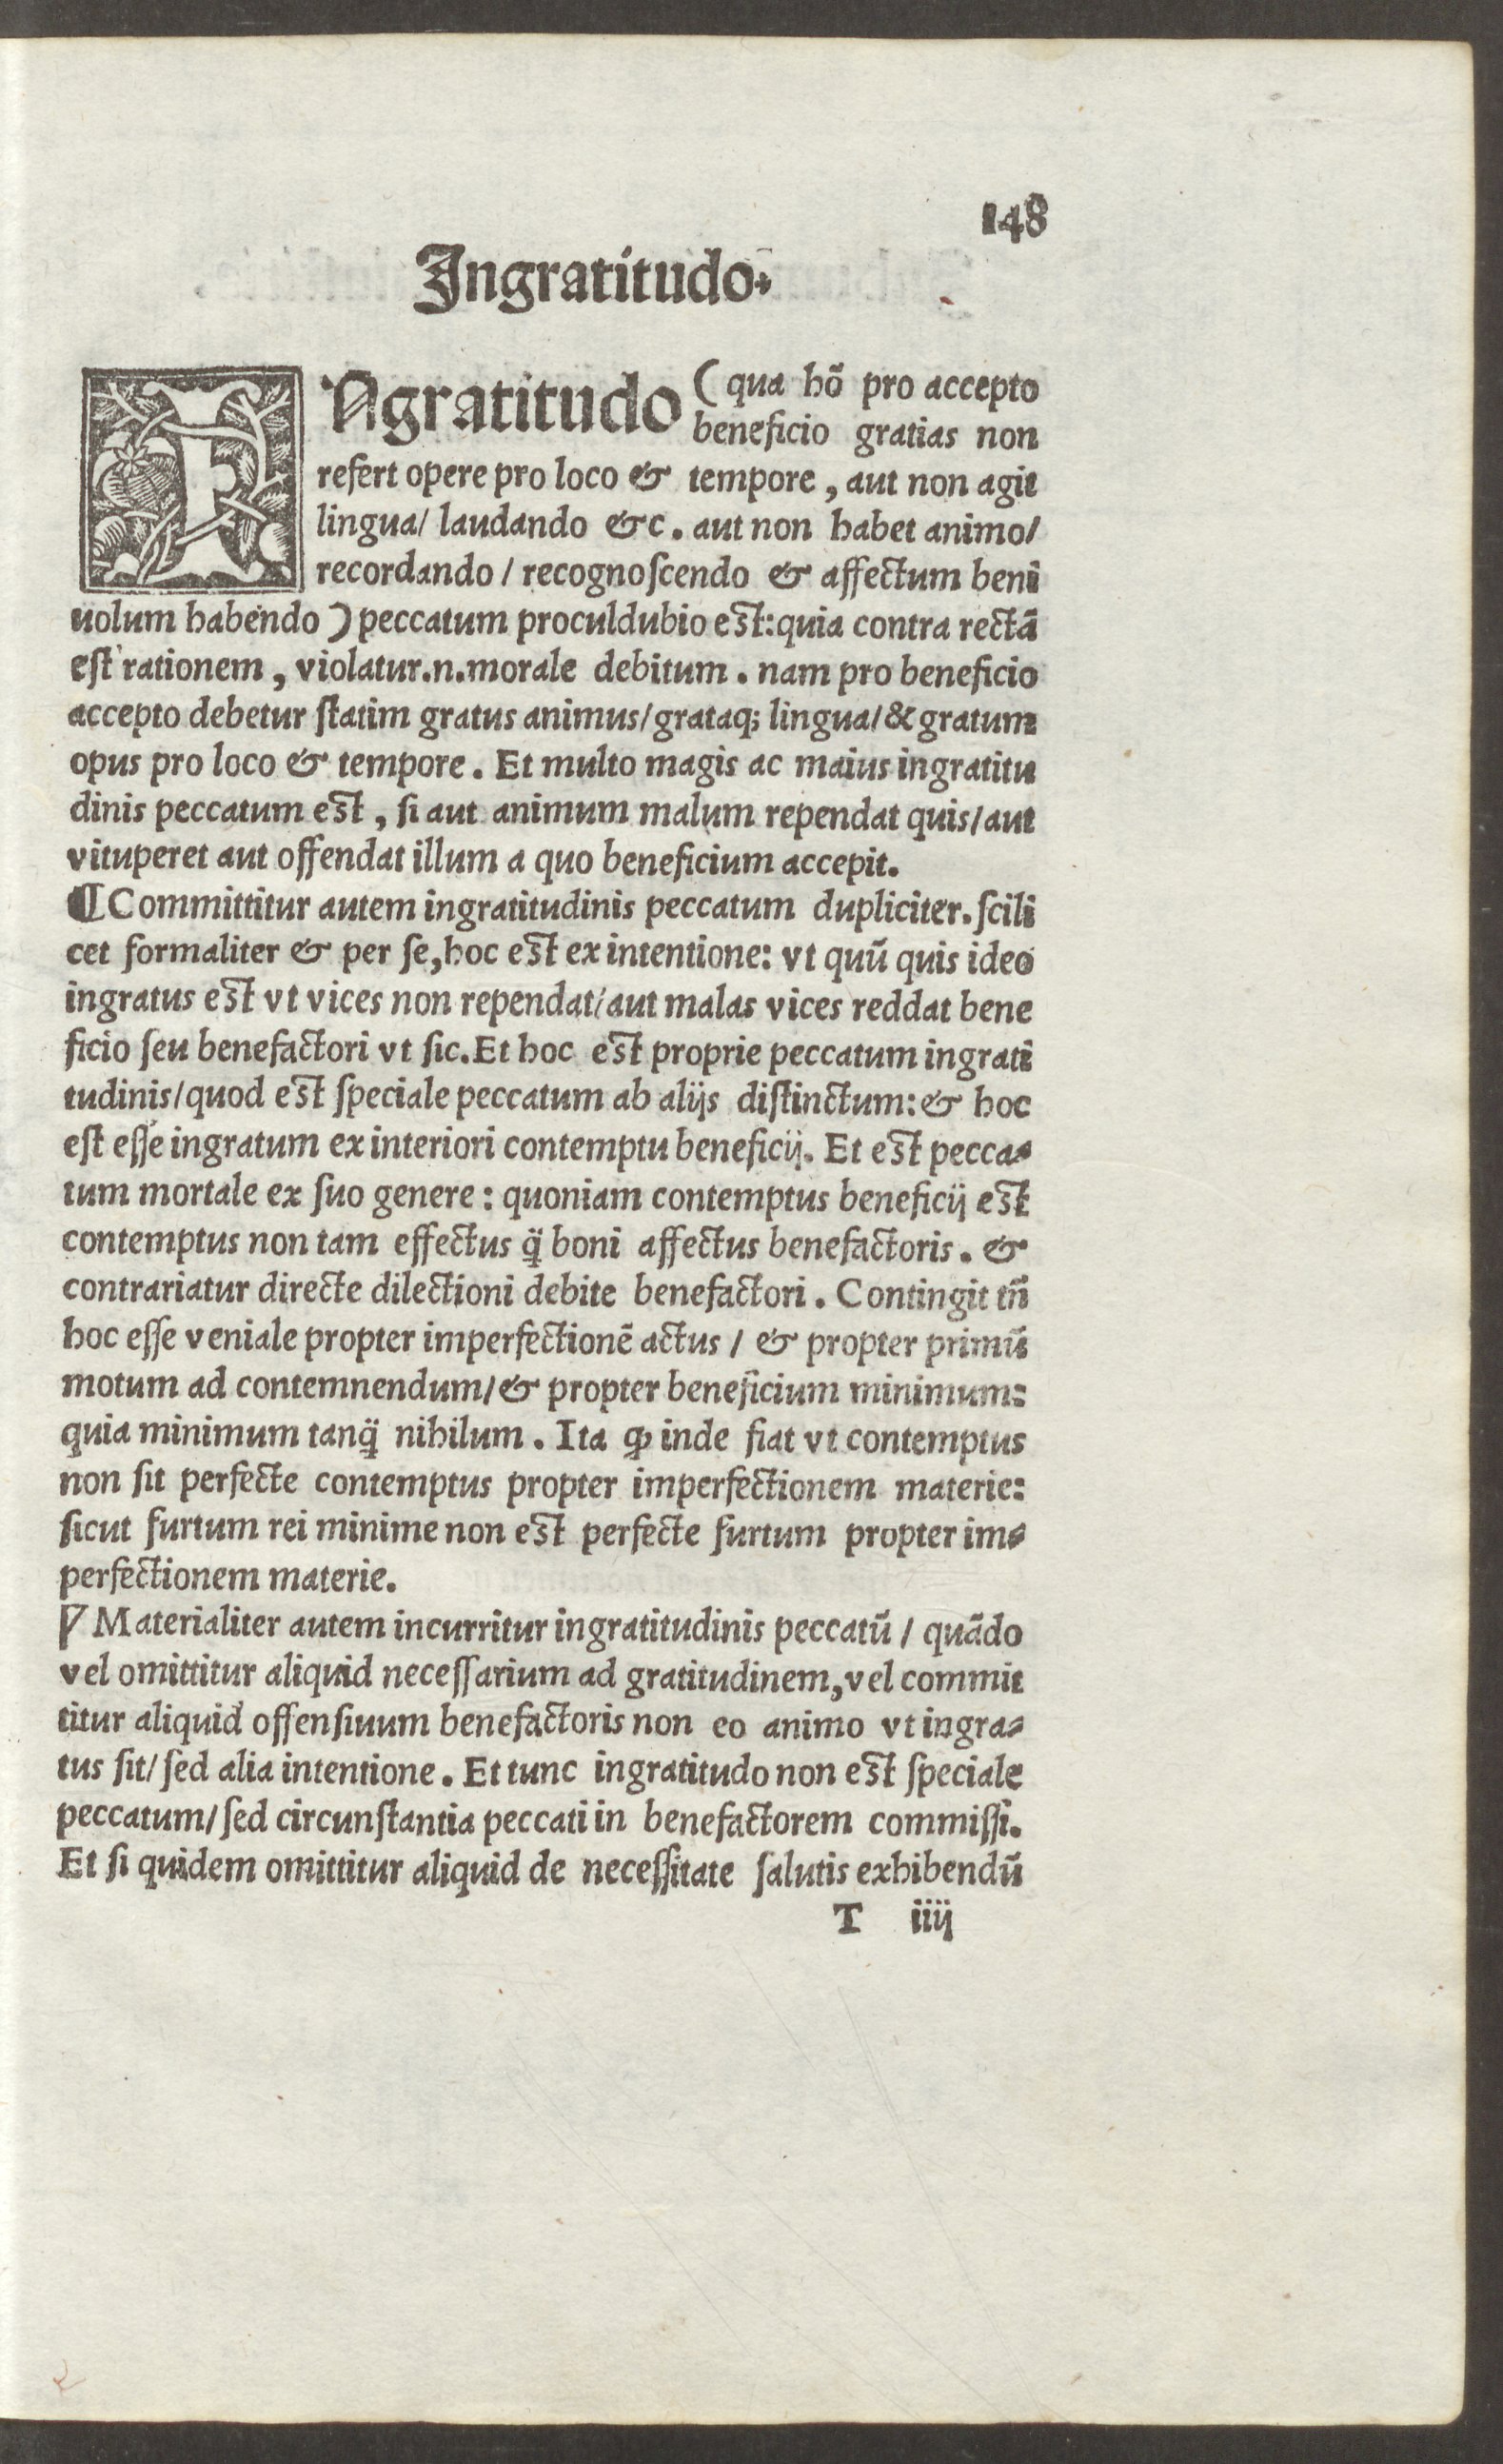 148
Ingratitudo.
INgratitudo (qua hõ pro accepto
beneficio gratias non
refert opere pro loco & tempore, aut non agit
lingua/ laudando &c. aut non habet animo/
recordando / recognoſcendo & affectum beni
uolum habendo ) peccatum proculdubio est: quia contra rectã
eſt rationem, violatur.n.morale debitum. nam pro beneficio
accepto debetur ſtatim gratus animus/ grataq; lingua/ & gratum
opus pro loco & tempore. Et multo magis ac maius ingratitu
dinis peccatum est, ſi aut animum malum rependat quis/ aut
vituperet aut offendat illum a quo beneficium accepit.
¶ Committitur autem ingratitudinis peccatum dupliciter. ſcili
cet formaliter & per ſe, hoc est ex intentione: vt quũ quis ideo
ingratus est vt vices non rependat/ aut malas vices reddat bene
ficio ſeu benefactori vt ſic. Et hoc est proprie peccatum ingrati
tudinis/ quod est ſpeciale peccatum ab alijs diſtinctum: & hoc
eſt eſſe ingratum ex interiori contemptu beneficij. Et est pecca⸗
tum mortale ex ſuo genere: quoniam contemptus beneficij est
contemptus non tam effectus q̃ boni affectus benefactoris. &
contrariatur directe dilectioni debite benefactori. Contingit tñ
hoc eſſe veniale propter imperfectionẽ actus / & propter primũ
motum ad contemnendum/ & propter beneficium minimum:
quia minimum tanq̃ nihilum. Ita ꝙ inde fiat vt contemptus
non ſit perfecte contemptus propter imperfectionem materie:
ſicut furtum rei minime non est perfecte furtum propter im⸗
perfectionem materie.
℣ Materialiter autem incurritur ingratitudinis peccatũ / quãdo
vel omittitur aliquid neceſſarium ad gratitudinem, vel commit
titur aliquid offenſiuum benefactoris non eo animo vt ingra⸗
tus ſit/ ſed alia intentione. Et tunc ingratitudo non est ſpeciale
peccatum/ ſed circunſtantia peccati in benefactorem commiſſi.
Et ſi quidem omittitur aliquid de neceſſitate ſalutis exhibendũ
T iiij